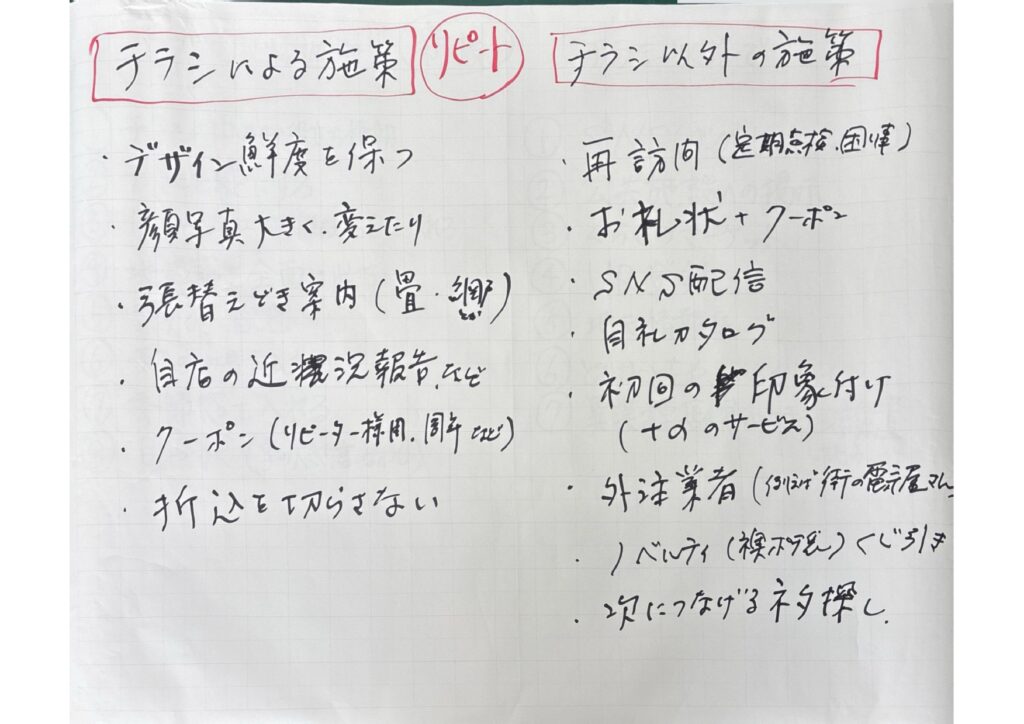 チラシによる施策
リピート
チラシ以外の施策
・デザイン鮮度を保つ
・顔写真大きく、変えたり
・張替えどき案内(畳・網戸)
・自店の近況報告、など
・クーポン(リピーター様用、周年など)
・折込を切らさない
・再訪問(定期点検、困事)
・お礼状+クーポン
・SNS配信
・自社カタログ
・初回の印象付け
(+αのサービス)
・外注業者(例えば街の電気屋さん
・ノベルティ(襖ポチ袋)くじ引き
・次につなげるネタ探し